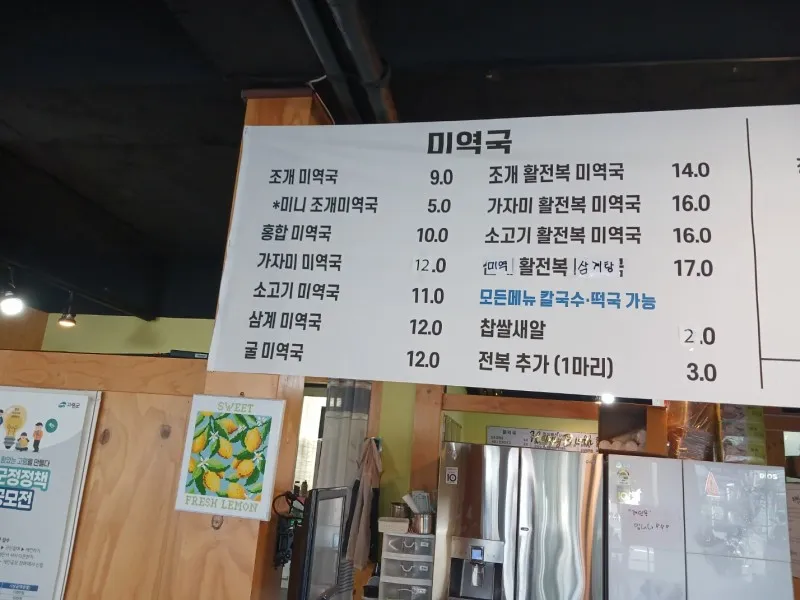 미역국
조개 미역국 9.0
*미니 조개미역국 5.0
홍합 미역국 10.0
가자미 미역국 12.0
소고기 미역국 11.0
삼계 미역국 12.0
굴 미역국 12.0
조개 활전복 미역국 14.0
가자미 활전복 미역국 16.0
소고기 활전복 미역국 16.0
미역 활전복 삼계탕 17.0
모든메뉴 칼국수·떡국 가능
찹쌀새알 2.0
전복 추가 (1마리) 3.0
SWEET
FRESH LEMON
군정정책
공모전